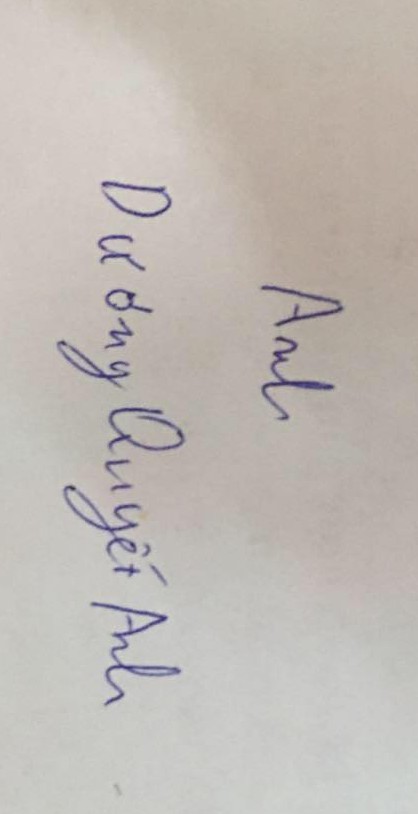 Anh
Dương Quyết Anh